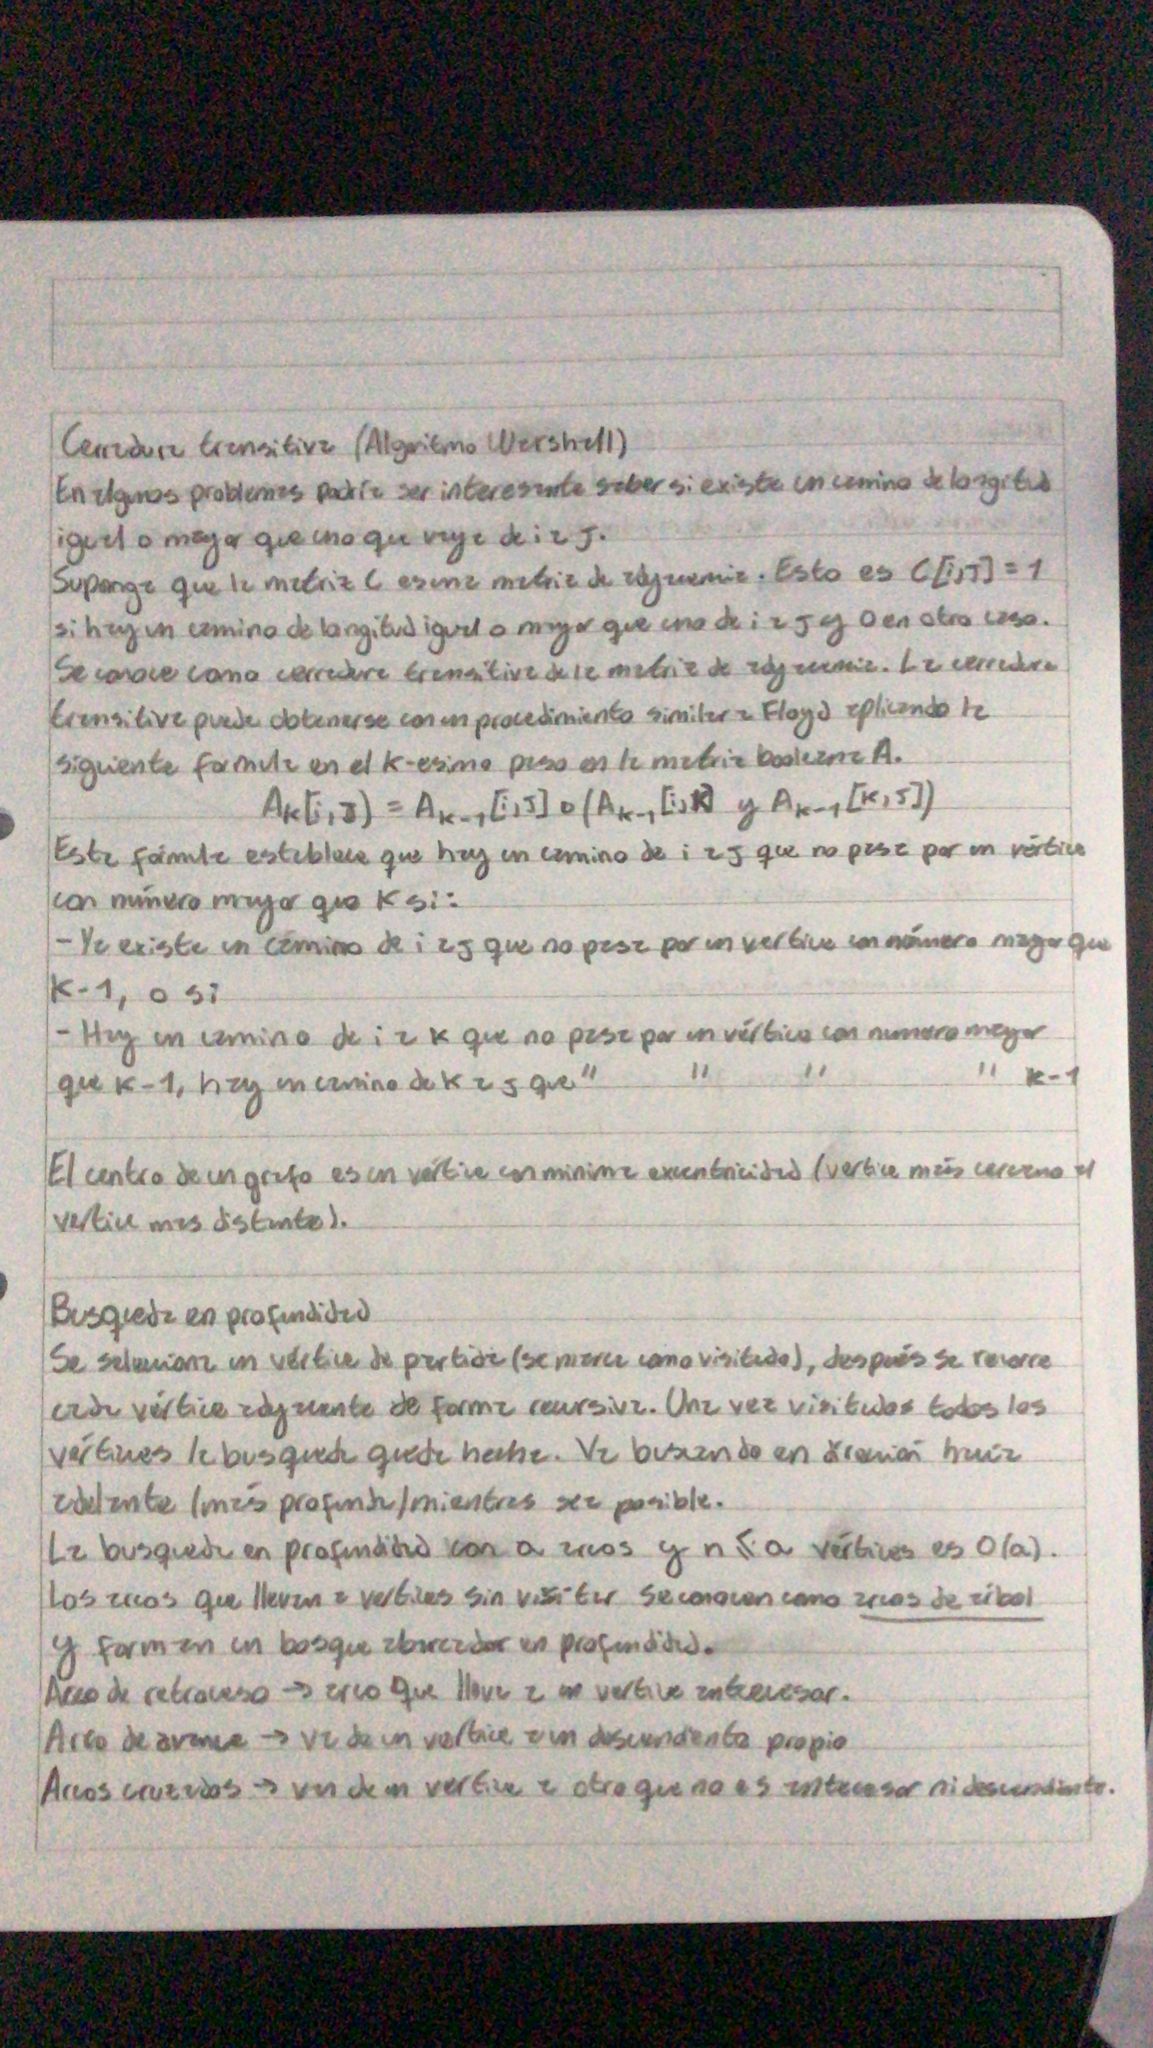 Cerradura transitiva (Algoritmo Warshall)
En algunos problemas podría ser interesante saber si existe un camino de longitud
igual o mayor que uno que vaya de i a j.
Suponga que la matriz C es una matriz de adyacencia. Esto es C[i,j] = 1
si hay un camino de longitud igual o mayor que uno de i a j y 0 en otro caso.
Se conoce como cerradura transitiva de la matriz de adyacencia. La cerradura
transitiva puede obtenerse con un procedimiento similar a Floyd aplicando la
siguiente formula en el k-esimo paso en la matriz booleana A.
Ak[i,j) = Ak-1[i,j] o (Ak-1[i,k] y Ak-1[k,j])
Esta fórmula establece que hay un camino de i a j que no pasa por un vértice
con número mayor que k si:
- Ya existe un camino de i a j que no pasa por un vertice con número mayor que
k-1, o si
- Hay un camino de i a k que no pasa por un vértice con numero mayor
que k-1, hay un camino de k a j que " " " " k-1
El centro de un grafo es un vértice con minima excentricidad (vertice más cercano al
vertice mas distante).
Busqueda en profundidad
Se selecciona un vértice de partida (se marca como visitado), después se recorre
cada vértice adyacente de forma recursiva. Una vez visitados todos los
vértices la busqueda queda hecha. Va buscando en dirección hacia
adelante (más profunda) mientras sea posible.
La busqueda en profundidad con a arcos y n ≤ a vértices es O(a).
Los arcos que llevan a vertices sin visitar se conocen como arcos de árbol
y forman un bosque abarcador en profundidad.
Arco de retroceso → arco que lleva a un vertice antecesor.
Arco de avance → va de un vertice a un descendiente propio
Arcos cruzados → van de un vertice a otro que no es antecesor ni descendiente.